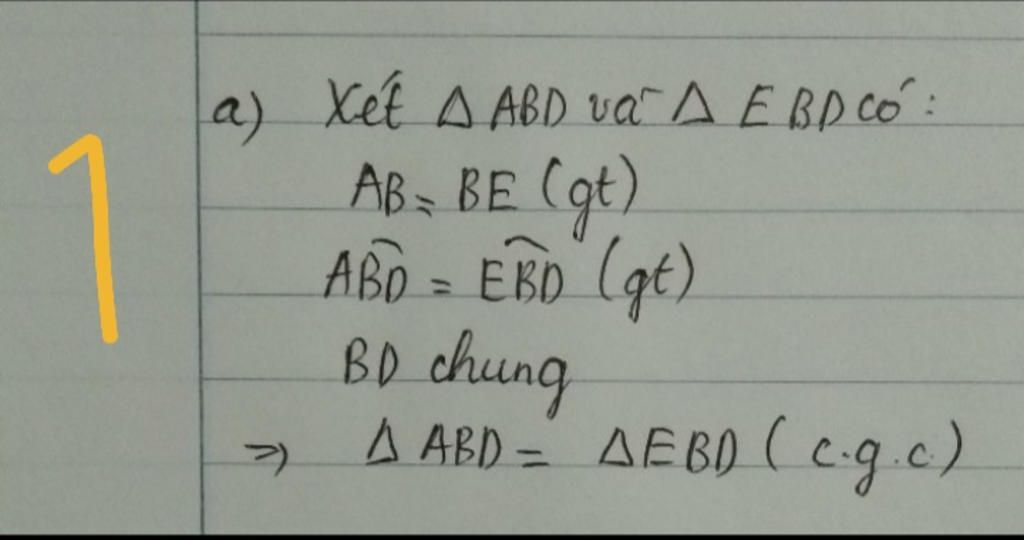 1
a) Xét Δ ABD và Δ EBD có:
AB = BE (gt)
ABD̂ = EBD̂ (gt)
BD chung
=> Δ ABD = Δ EBD (c.g.c)